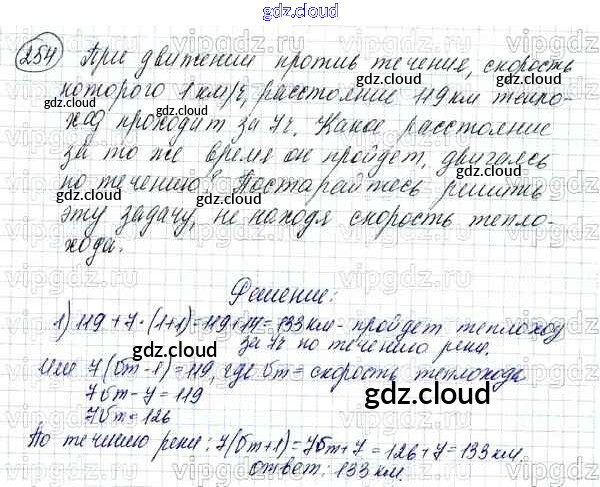 gdz.cloud
254 При движении против течения, скорость
которого 1 км/ч, расстояние 119 км тепло-
ход проходит за 7ч. Какое расстояние
за то же время он пройдет, двигаясь
по течению? Постарайтесь решить
эту задачу, не находя скорость тепло-
хода.
Решение:
1) 119 + 7 · (1+1) = 119 + 14 = 133 км - пройдет теплоход
за 7ч по течению реки.
Или 7(бт-1) = 119, где бт = скорость теплохода
7бт - 7 = 119
7бт = 126
По течению реки: 7(бт+1) = 7бт + 7 = 126 + 7 = 133 км.
ответ: 133 км.